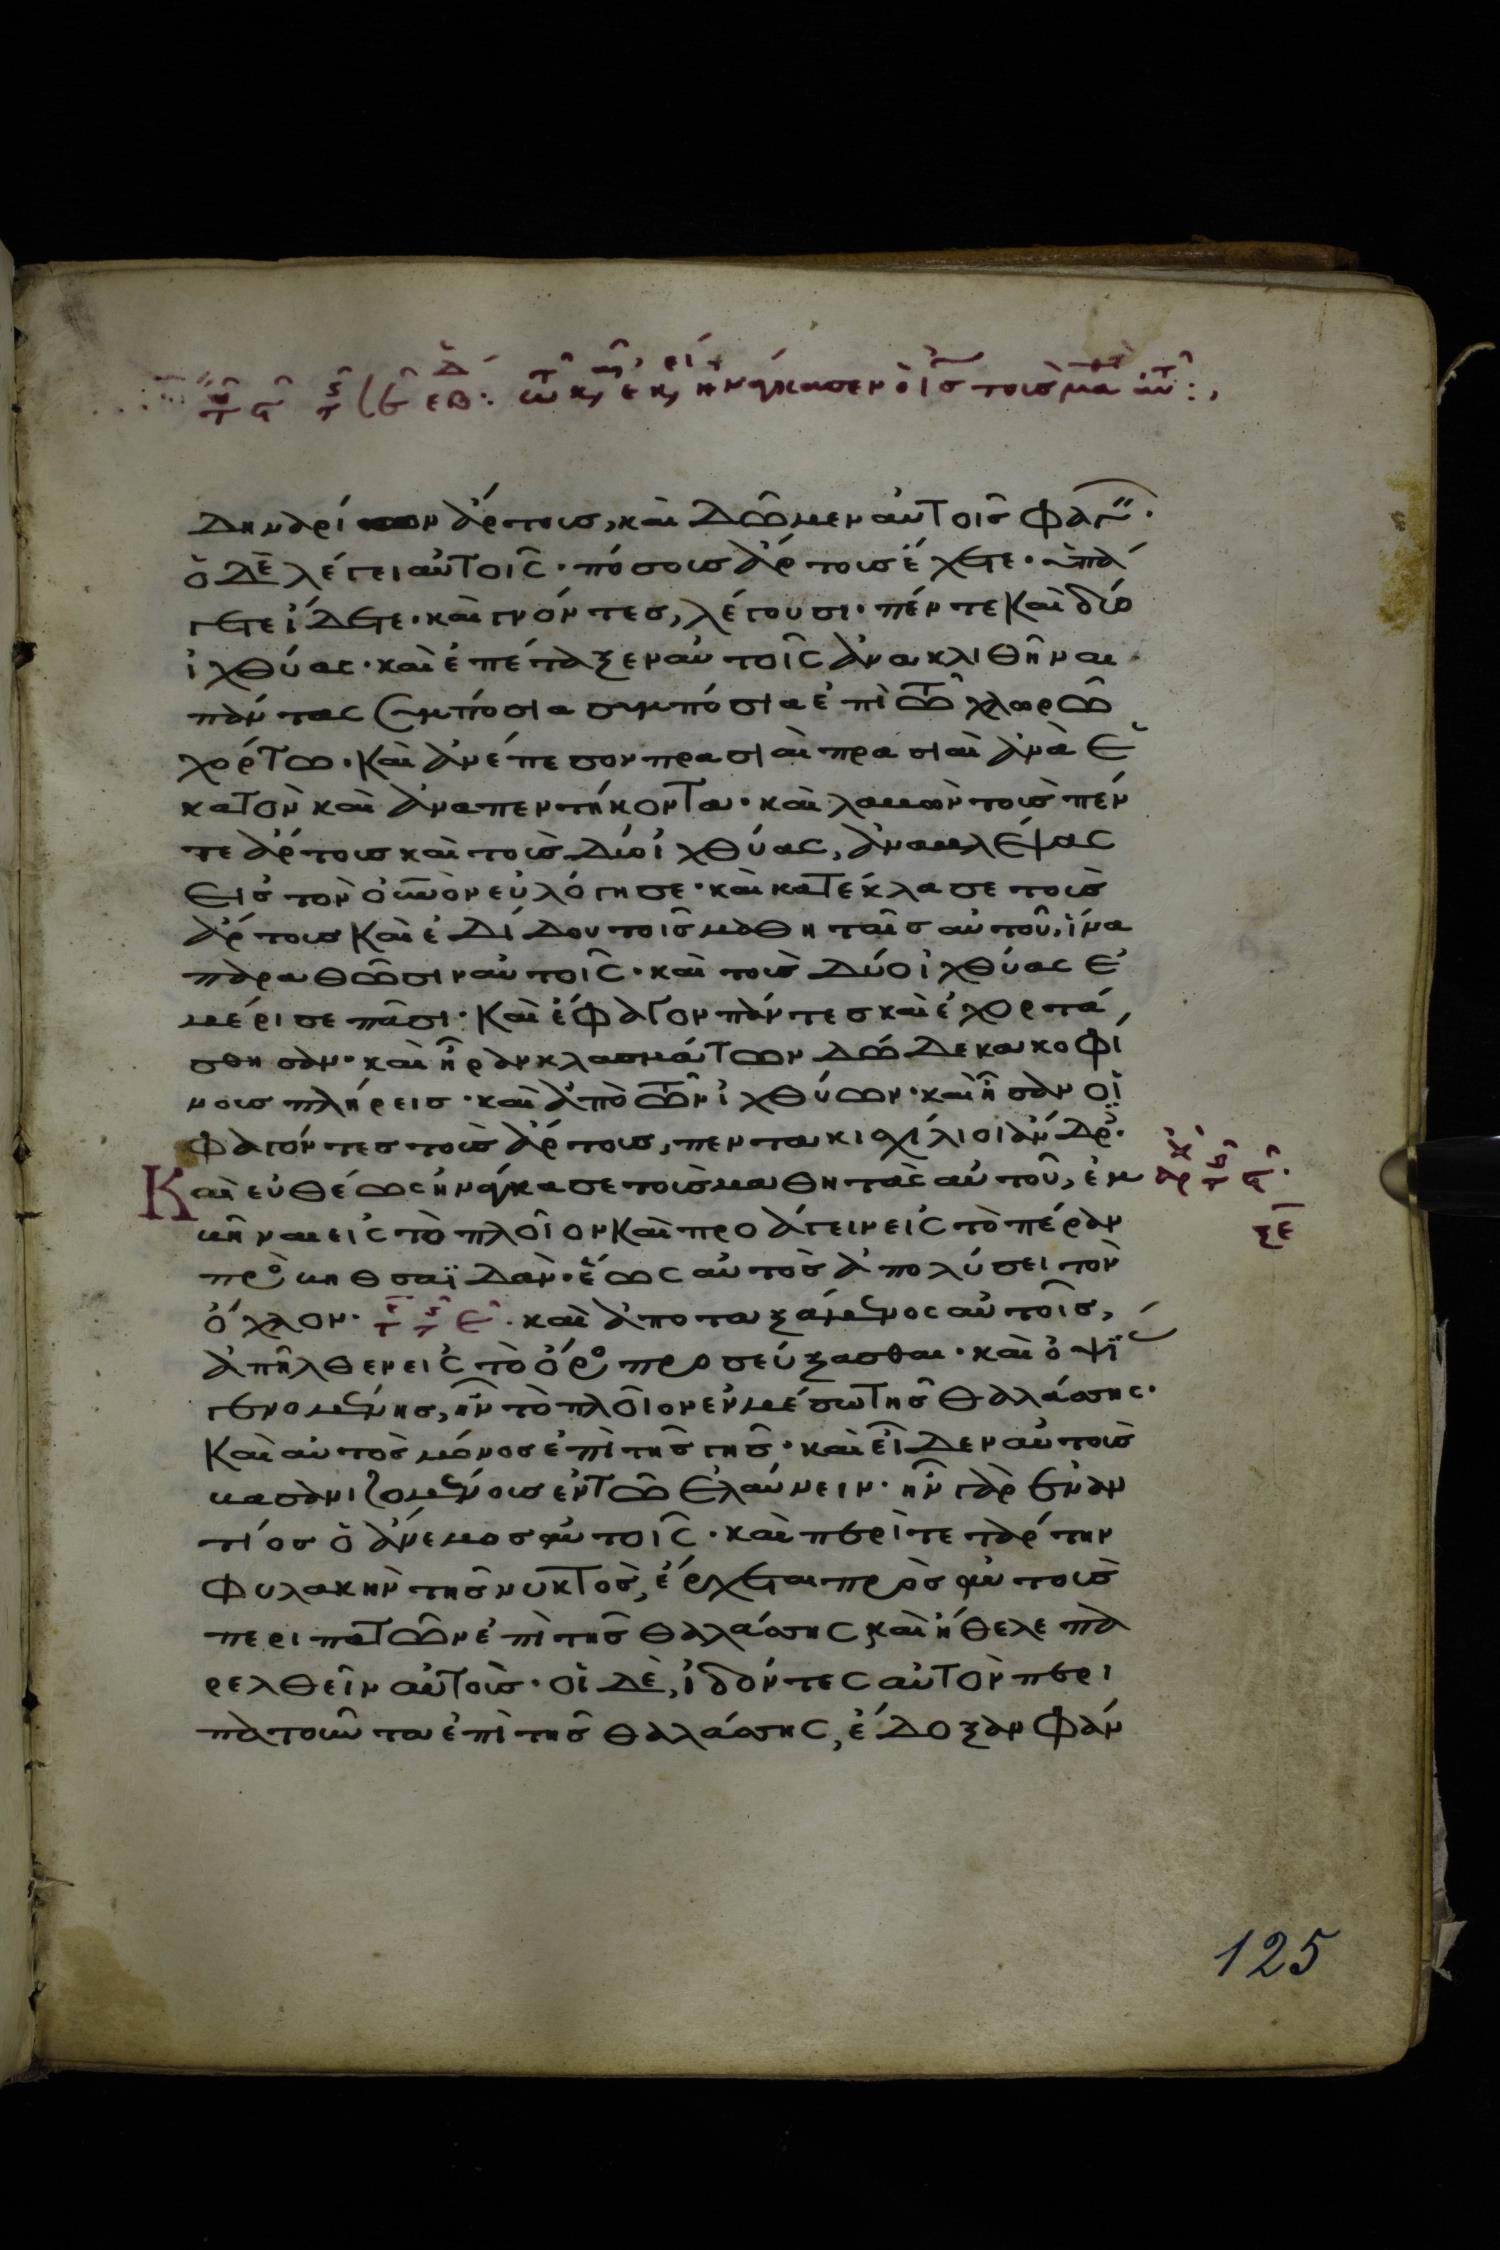 δηναρίων ἄρτους, καὶ δῶμεν αὐτοῖς φαγ
ὁ δὲ λέγει αὐτοῖς· πόσους ἄρτους ἔχετε· ὑπά
γετε ἴδετε· καὶ γνόντες, λέγουσι· πέντε καὶ δύο
ἰχθύας· καὶ ἐπέταξεν αὐτοῖς ἀνακλιθῆναι
πάντας συμπόσια συμπόσια ἐπὶ τῶ χλωρῶ
χόρτω· καὶ ἀνέπεσον πρασιαὶ πρασιαὶ ἀνὰ ἑ
κατὸν καὶ ἀνα πεντήκοντα· καὶ λαβὼν τοὺς πέν
τε ἄρτους καὶ τοὺς δύο ἰχθύας, ἀναβλέψας
εἰς τὸν οὐνὸν εὐλόγησε· καὶ κατέκλασε τοὺς
ἄρτους καὶ ἐδίδου τοῖς μαθηταῖς αὐτοῦ, ἵνα
παραθῶσιν αὐτοῖς· καὶ τοὺς δύο ἰχθύας ἐ
μέρισε πᾶσι· καὶ ἔφαγον πάντες καὶ ἐχορτά
σθησαν· καὶ ἦραν κλασμάτων δώδεκα κοφί
νους πλήρεις· καὶ ἀπὸ τῶν ἰχθύων· καὶ ἦσαν οἱ
φαγόντες τοὺς ἄρτους, πεντακιχίλιοι ἄνδρε·
Καὶ εὐθέως ἠνάγκασε τοὺς μαθητὰς αὐτοῦ, ἐμ
βῆναι εἰς τὸ πλοῖον καὶ προάγειν εἰς τὸ πέραν
ξε
πρὸς βηθσαϊδάν· ἕως αὐτὸς ἀπολύσει τὸν
ὄχλον· καὶ ἀποταξάμενος αὐτοῖς,
ἀπῆλθεν εἰς τὸ ὄρος προσεύξασθαι· καὶ ὀψΐας
γενομένης, ἦν τὸ πλοῖον ἐν μέσω τῆς θαλάσσης·
Καὶ αὐτὸς μόνος ἐπὶ τῆς γῆς· καὶ εἶδεν αὐτοὺς
βασανιζομένους ἐν τῶ ἐλαύνειν· ἦν γὰρ ἐναν
τίος ὁ ἄνεμος αὐτοῖς· καὶ περὶ τετάρτην
φυλακὴν τῆς νυκτὸς, ἔρχεται πρὸς αὐτοὺς
περιπατῶν ἐπὶ τῆς θαλάσσης καὶ ἤθελε πα
ρελθεῖν αὐτοὺς· οἱ δὲ, ἰδόντες αὐτὸν περι
πατοῦντα ἐπὶ τῆς θαλάσσης, ἔδοξαν φάν
125